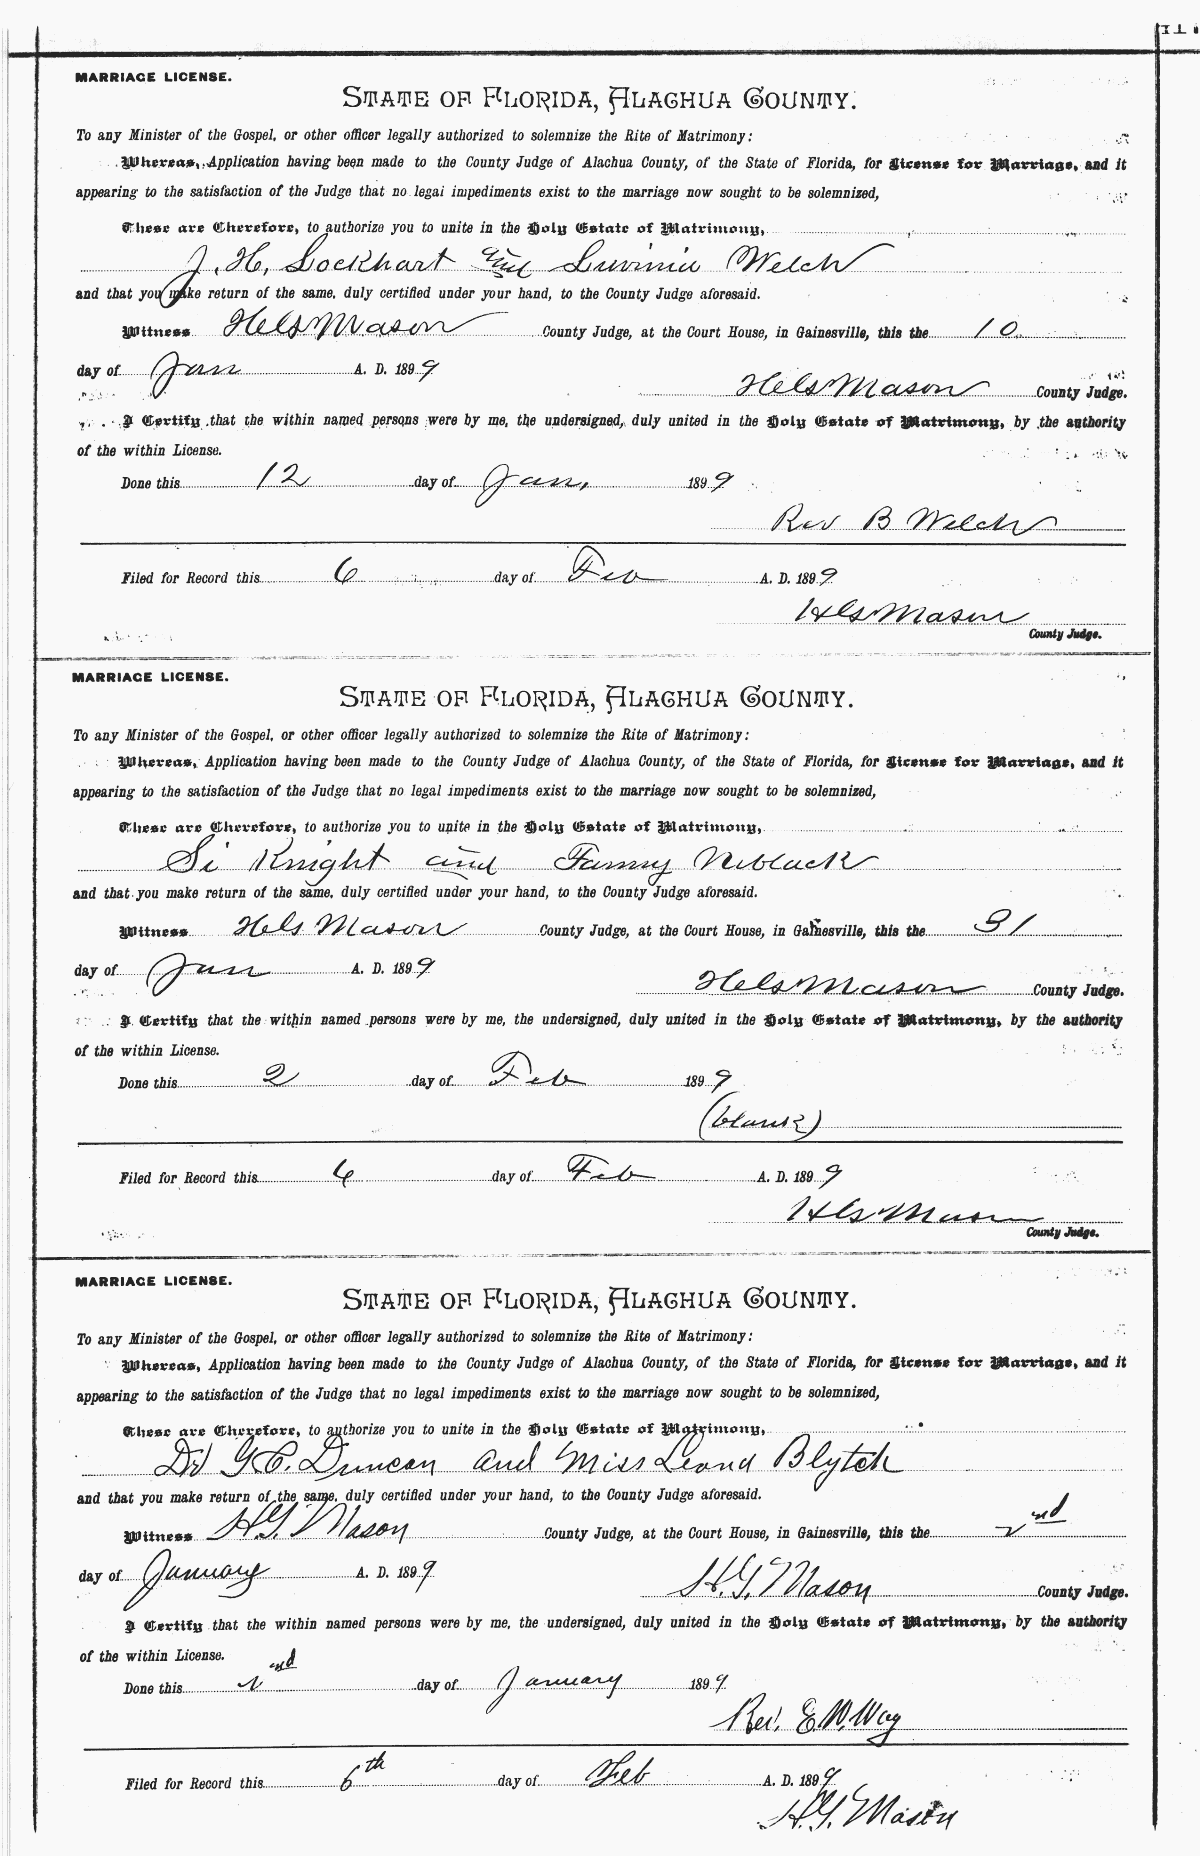 MARRIAGE LICENSE.
STATE OF FLORIDA, ALACHUA COUNTY.
To any Minister of the Gospel, or other officer legally authorized to solemnize the Rite of Matrimony:
Whereas, Application having been made to the County Judge of Alachua County, of the State of Florida, for License for Marriage, and it
appearing to the satisfaction of the Judge that no legal impediments exist to the marriage now sought to be solemnized,
These are Therefore, to authorize you to unite in the Holy Estate of Matrimony,
J. H. Lockhart and Luvinia Welch
and that you make return of the same, duly certified under your hand, to the County Judge aforesaid.
Witness Mason County Judge, at the Court House, in Gainesville, this the 10
day of Jan A. D. 1899
Mason County Judge.
I Certify that the within named persons were by me, the undersigned, duly united in the Holy Estate of Matrimony, by the authority
of the within License.
Done this 12 day of Jan, 1899
Rev B Welch
Filed for Record this 6 day of Feb A. D. 1899
Mason
County Judge.
MARRIAGE LICENSE.
STATE OF FLORIDA, ALACHUA COUNTY.
To any Minister of the Gospel, or other officer legally authorized to solemnize the Rite of Matrimony:
Whereas, Application having been made to the County Judge of Alachua County, of the State of Florida, for License for Marriage, and it
appearing to the satisfaction of the Judge that no legal impediments exist to the marriage now sought to be solemnized,
These are Therefore, to authorize you to unite in the Holy Estate of Matrimony,
Si Knight and Fanny Niblack
and that you make return of the same, duly certified under your hand, to the County Judge aforesaid.
Witness Mason County Judge, at the Court House, in Gainesville, this the 31
day of Jan A. D. 1899
Mason County Judge.
I Certify that the within named persons were by me, the undersigned, duly united in the Holy Estate of Matrimony, by the authority
of the within License.
Done this 2 day of Feb 1899
(blank)
Filed for Record this 6 day of Feb A. D. 1899
Mason
County Judge.
MARRIAGE LICENSE.
STATE OF FLORIDA, ALACHUA COUNTY.
To any Minister of the Gospel, or other officer legally authorized to solemnize the Rite of Matrimony:
Whereas, Application having been made to the County Judge of Alachua County, of the State of Florida, for License for Marriage, and it
appearing to the satisfaction of the Judge that no legal impediments exist to the marriage now sought to be solemnized,
These are Therefore, to authorize you to unite in the Holy Estate of Matrimony,
Dr G. C. Duncan and Miss Leona Blytch
and that you make return of the same, duly certified under your hand, to the County Judge aforesaid.
Witness H. G. Mason County Judge, at the Court House, in Gainesville, this the 2nd
day of January A. D. 1899
H. G. Mason County Judge.
I Certify that the within named persons were by me, the undersigned, duly united in the Holy Estate of Matrimony, by the authority
of the within License.
Done this 2nd day of January 1899
Rev. E. W. Way
Filed for Record this 6th day of Feb A. D. 1899
H. G. Mason